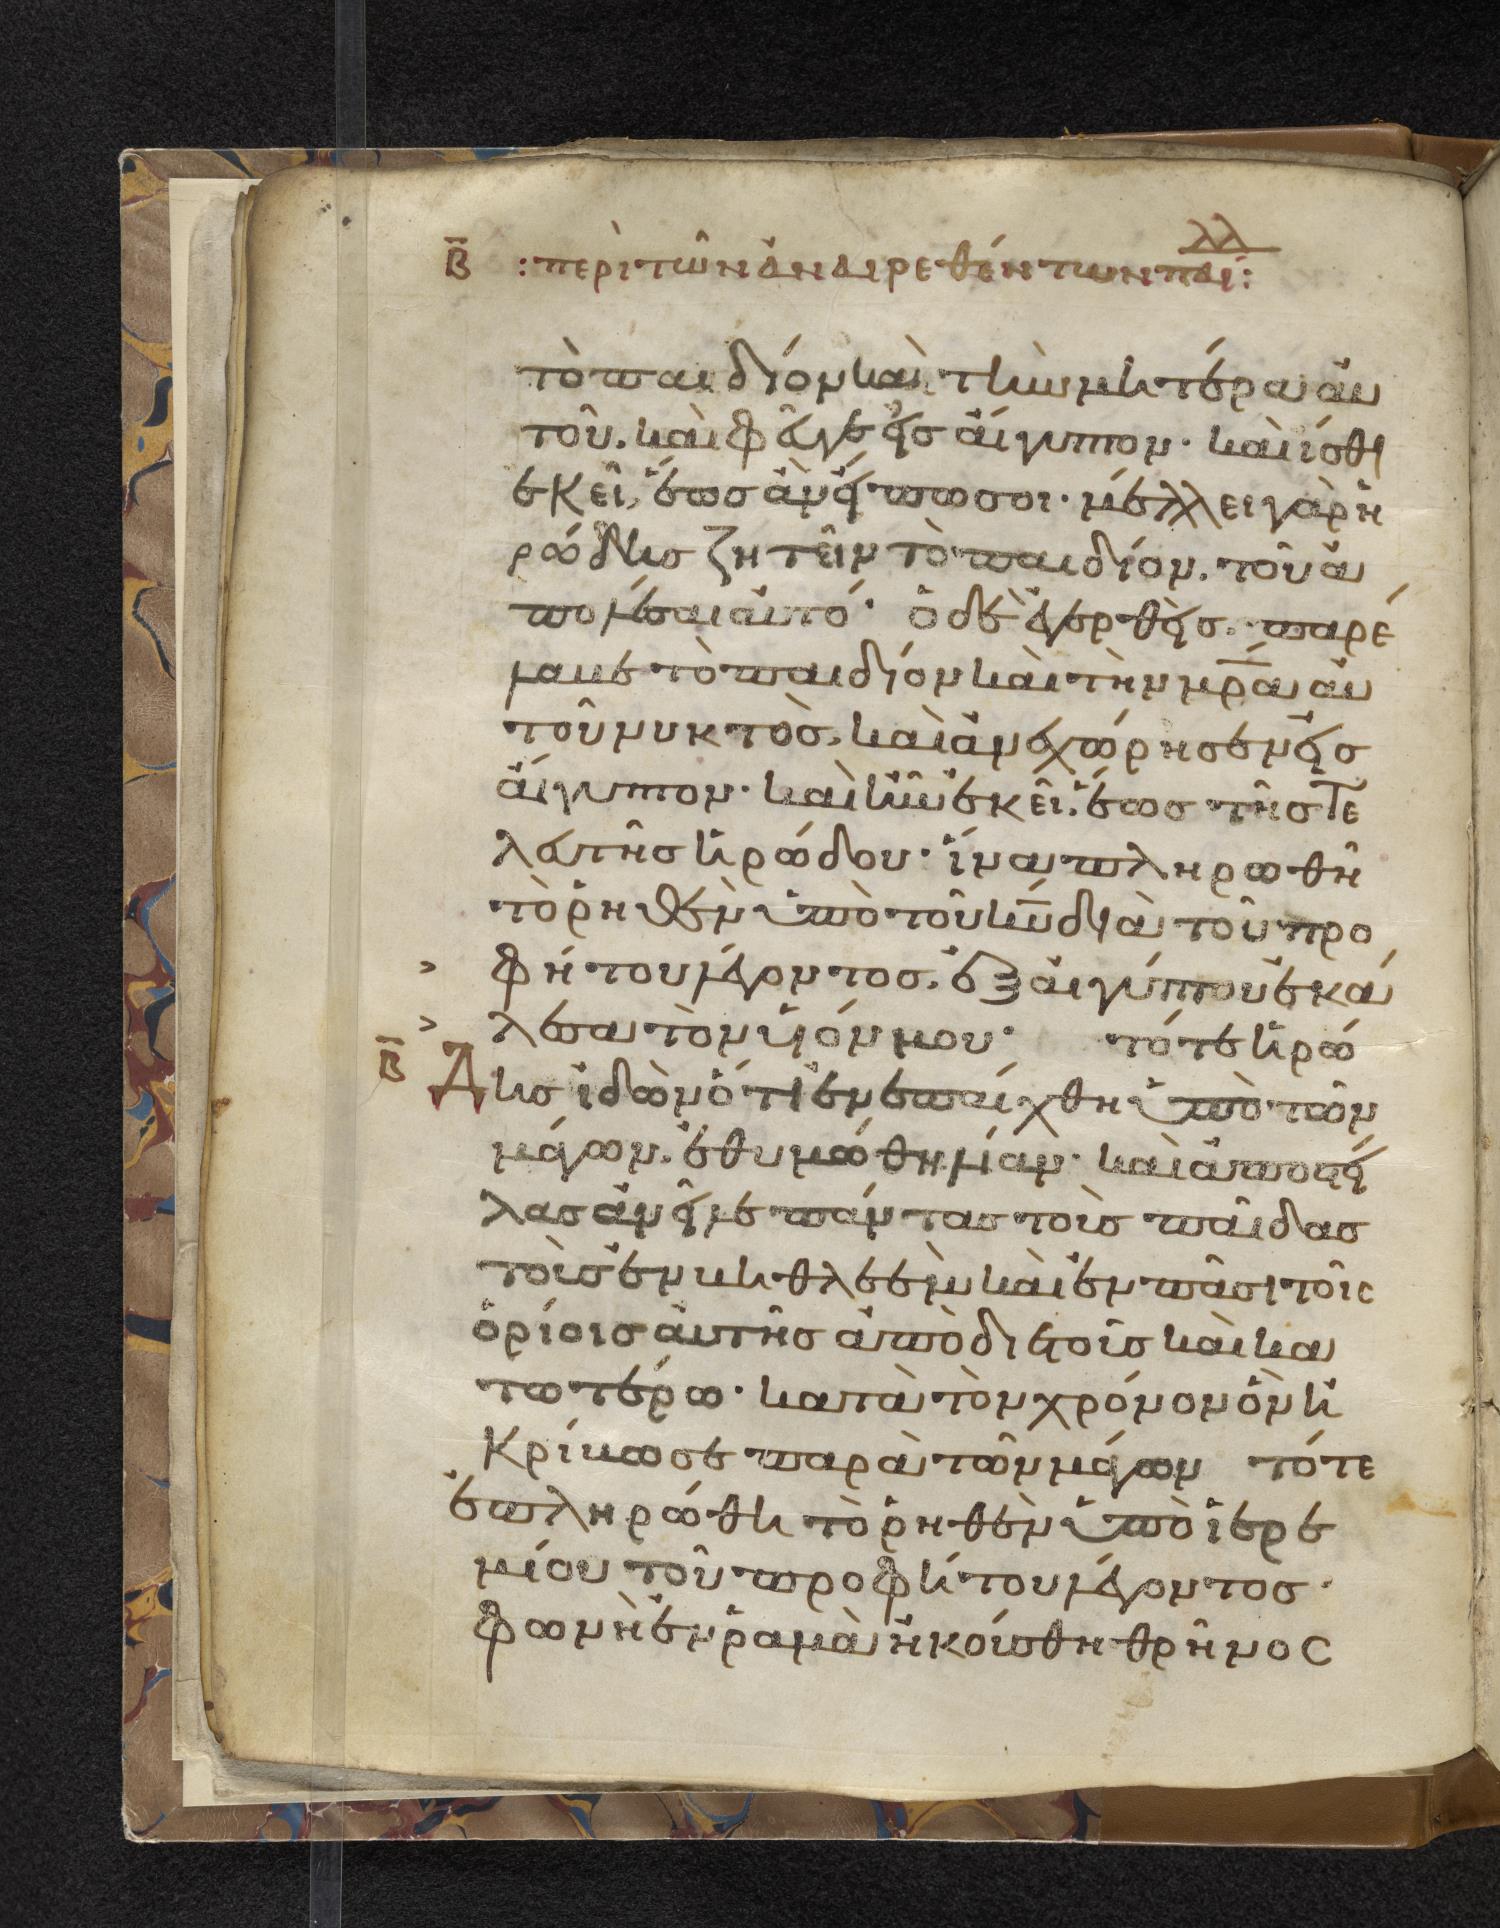 Β̅ :περὶ τῶν ἀναιρεθέντων παί:
τὸ παιδίον καὶ τὴν μητέρα αὐ
τοῦ. καὶ φεῦγε εἰς αἴγυπτον· καὶ ἴσθι
ἐκεῖ, ἕως ἂν εἴπω σοι· μέλλει γὰρ ἡ
ρώδης ζητεῖν τὸ παιδίον. τοῦ ἀ
πολέσαι αὐτό· ὁ δὲ ἐγερθεὶς. παρέ
λαβε τὸ παιδίον καὶ τὴν μρ̅α αὐ
τοῦ νυκτὸς, καὶ ἀνεχώρησεν εἰς
αἴγυπτον· καὶ ἦν ἐκεῖ. ἕως τῆς τε
λευτῆς ἡρώδου· ἵνα πληρωθῆ
τὸ ῥηθὲν ὑπὸ τοῦ κυ̅ διὰ τοῦ προ
> φήτου λέγοντος. ἐξ αἰγύπτου ἐκά
> λεσα τὸν υἱόν μου· τότε ἡρώ
Β̅ Δης ἰδὼν ὅτι ἐνεπαίχθη ὑπὸ τῶν
μάγων. ἐθυμώθη λίαν· καὶ ἀποστεί
λας ἀνεῖλε πάντας τοὺς παῖδας
τοὺς ἐν βηθλεὲμ καὶ ἐν πᾶσι τοῖς
ὁρίοις αὐτῆς ἀπὸ διετοῦς καὶ κα
τωτέρω· κατὰ τὸν χρόνον ὃν ἠ
κρίβωσε παρὰ τῶν μάγων τότε
ἐπληρώθη τὸ ῥηθὲν ὑπὸ ἱερε
μίου τοῦ προφήτου λέγοντος·
φωνὴ ἐν ῥαμὰ ἠκούσθη θρῆνος